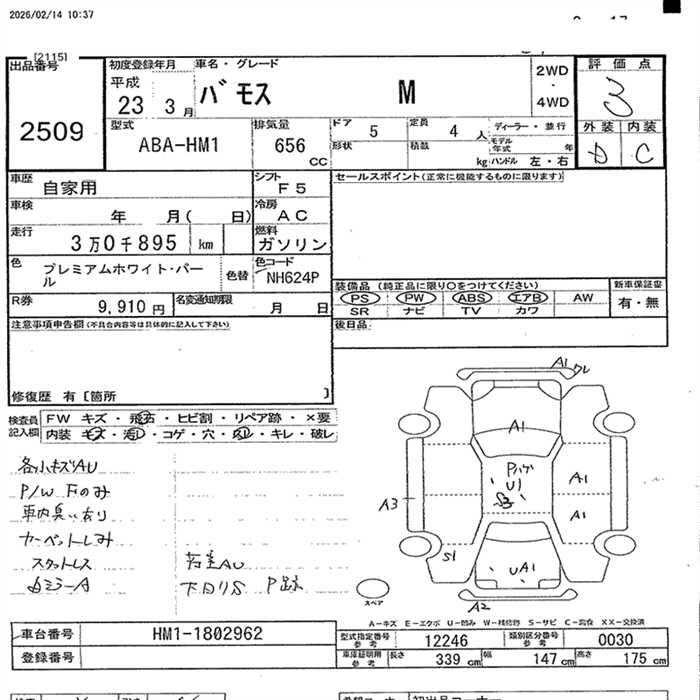 2026/02/14 10:37
[2115]
出品番号
2509
初度登録年月
平成
23 3月
車名・グレード
バモス M
2WD
・
4WD
評価点
3
外装 内装
D C
型式
ABA-HM1
排気量
656
CC
ドア 5
定員 4 人
ディーラー・並行
形状
積載
kg
モデル年式 年
ハンドル 左・右
車歴
自家用
シフト
F5
セールスポイント(正常に機能するものに限ります)
車検
年 月( 日)
冷房
AC
走行
3万0千895 km
燃料
ガソリン
色
プレミアムホワイト・パール
色替
色コード
NH624P
装備品 (純正品に限り○をつけてください)
PS PW ABS エアB AW
SR ナビ TV カワ
新車保証書
有・無
R券
9,910 円
名変通知期限
月 日
後日品
注意事項申告欄(不具合内容等は具体的に記入して下さい)
修復歴 有 [箇所 ]
検査員
記入欄
FW キズ・飛石・ヒビ割・リペア跡・×要
内装 キズ・汚レ・コゲ・穴・凹レ・キレ・破レ
各小キズAU
P/W Fのみ
車内臭いあり
カーペットシミ
スタットレス
下回りS P跡
A1
A1
P
U1
A1
A1
A3
S1
UA1
A2
スペア
A-キズ E-エクボ U-凹み W-補修跡 S-サビ C-腐食 XX-交換済
車台番号
HM1-1802962
登録番号
型式指定番号
参考
12246
類別区分番号
参考
0030
車庫証明用
参考
長さ 339 cm
幅 147 cm
高さ 175 cm